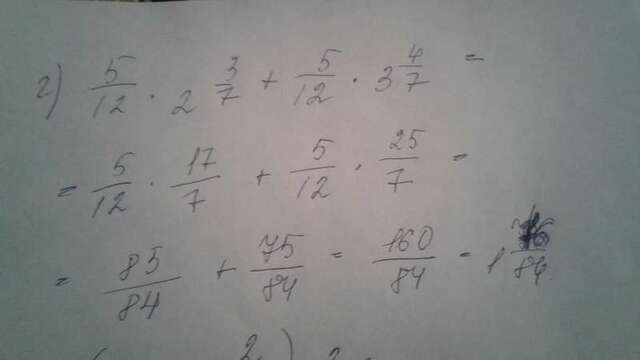 г) 5/12 · 2 3/7 + 5/12 · 3 4/7 =
= 5/12 · 17/7 + 5/12 · 25/7 =
= 85/84 + 75/84 = 160/84 = 1 76/84